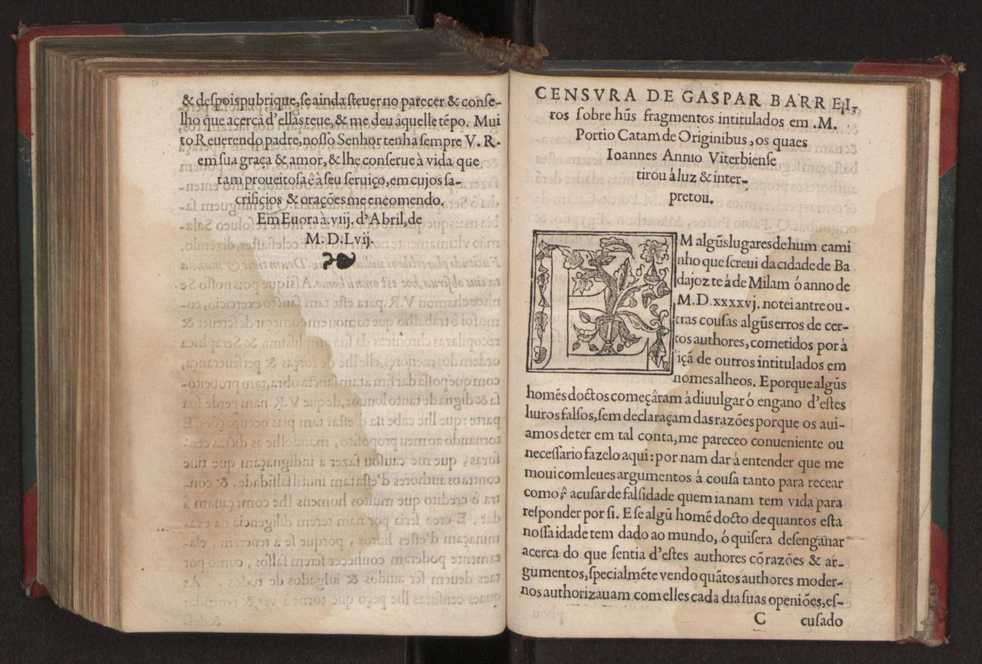 & despois pubrique, se ainda steuer no parecer & conse-
lho que acerca d'ellas teue, & me deu àquelle tẽpo. Mui
to Reuerendo padre, nosso Senhor tenha sempre V. R.
em sua graça & amor, & lhe conserue à vida que
tam proueitosa ê à seu seruiço, em cujos sa-
crificios & orações me encomendo.
Em Euora à. viij. d'Abril, de
M. D. Lvij.
CENSVRA DE GASPAR BARREI,
ros sobre hũs fragmentos intitulados em .M.
Portio Catam de Originibus, os quaes
Ioannes Annio Viterbiense
tirou à luz & inter-
pretou.
EM algũs lugares de hum cami
nho que screui da cidade de Ba
dajoz te à de Milam ó anno de
M. D. xxxxvj. notei antre ou-
tras cousas algũs erros de cer-
tos authores, cometidos por à
liçã de outros intitulados em
nomes alheos. E porque algũs
homẽs doctos começàram à diuulgar ó engano d'estes
liuros falsos, sem declaraçam das razões porque os aui-
amos de ter em tal conta, me pareceo conueniente ou
necessario fazelo aqui: por nam dar à entender que me
moui com leues argumentos à cousa tanto para recear
como ê acusar de falsidade quem ia nam tem vida para
responder por si. E se algũ homẽ docto de quantos esta
nossa idade tem dado ao mundo, ó quisera desenganar
acerca do que sentia d'estes authores cõ razões & ar-
gumentos, specialmẽte vendo quãtos authores moder-
nos authorizauam com elles cada dia suas openiões, es-
C cusado